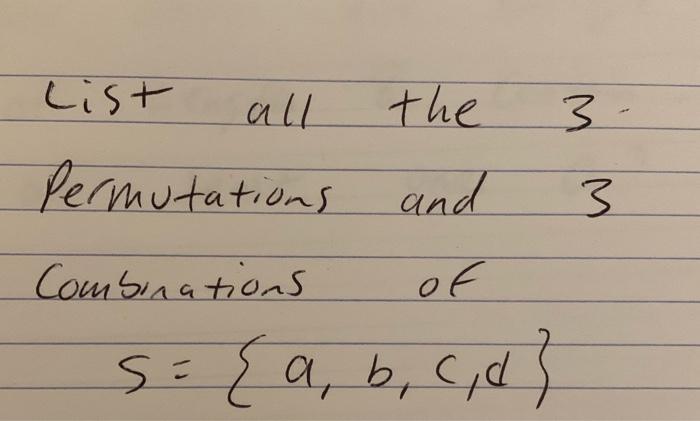 List all the 3-
Permutations and 3
Combinations of
S = { a, b, c, d }